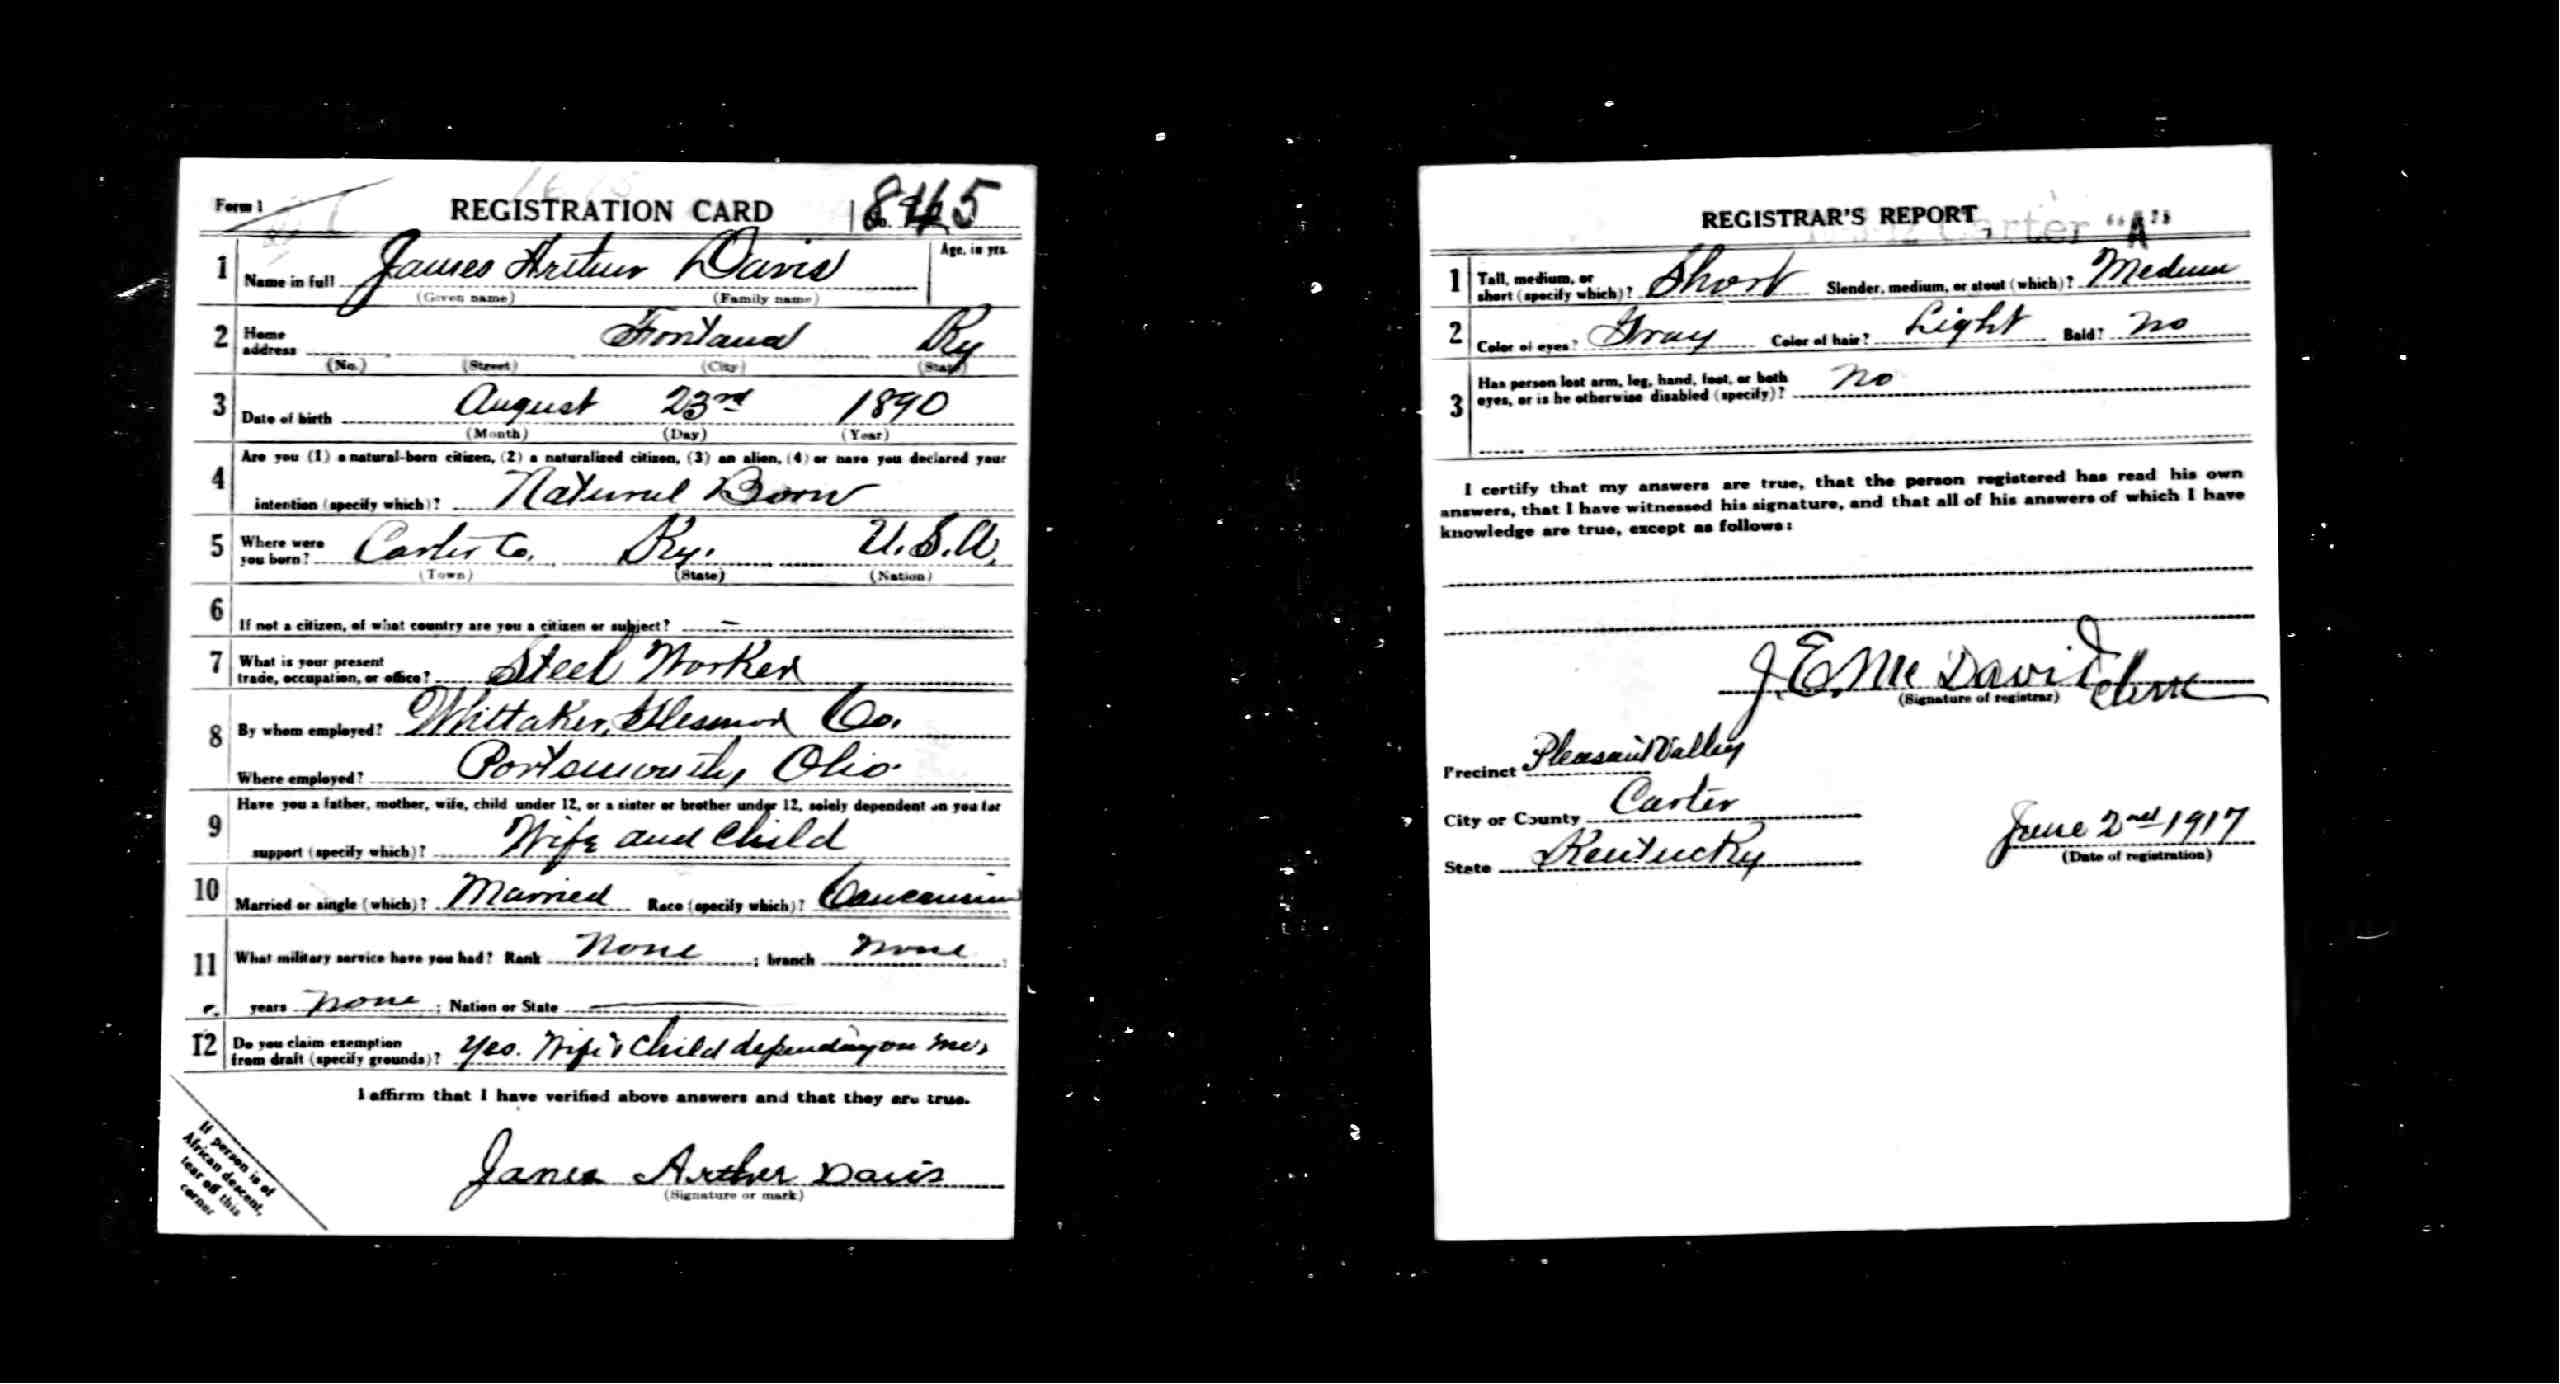 Form 1 REGISTRATION CARD No.
1 Name in full James Arthur Davis Age, in yrs.
(Given name) (Family name)
2 Home address Fontana Ky
(No.) (Street) (City) (State)
3 Date of birth August 23rd 1890
(Month) (Day) (Year)
4 Are you (1) a natural-born citizen, (2) a naturalized citizen, (3) an alien, (4) or have you declared your
intention (specify which)? Natural Born
5 Where were you born? Carter Co. Ky. U.S.A.
(Town) (State) (Nation)
6 If not a citizen, of what country are you a citizen or subject? —
7 What is your present
trade, occupation, or office? Steel Worker
8 By whom employed? Whittaker, Co.
Where employed? Portsmouth, Ohio.
9 Have you a father, mother, wife, child under 12, or a sister or brother under 12, solely dependent on you for
support (specify which)? Wife and Child
10 Married or single (which)? Married Race (specify which)? Caucasian
11 What military service have you had? Rank None ; branch None ;
years None ; Nation or State
12 Do you claim exemption
from draft (specify grounds)? Yes. Wife & Child depending on me.
I affirm that I have verified above answers and that they are true.
James Arther Davis
(Signature or mark)
If person is of
African descent,
tear off this
corner
REGISTRAR'S REPORT
Carter "A"
1 Tall, medium, or
short (specify which)? Short Slender, medium, or stout (which)? Medium
2 Color of eyes? Gray Color of hair? Light Bald? No
3 Has person lost arm, leg, hand, foot, or both
eyes, or is he otherwise disabled (specify)? No
I certify that my answers are true, that the person registered has read his own
answers, that I have witnessed his signature, and that all of his answers of which I have
knowledge are true, except as follows:
J. E. McDavid Clerk
(Signature of registrar)
Precinct Pleasant Valley
City or County Carter
State Kentucky
June 2nd 1917
(Date of registration)